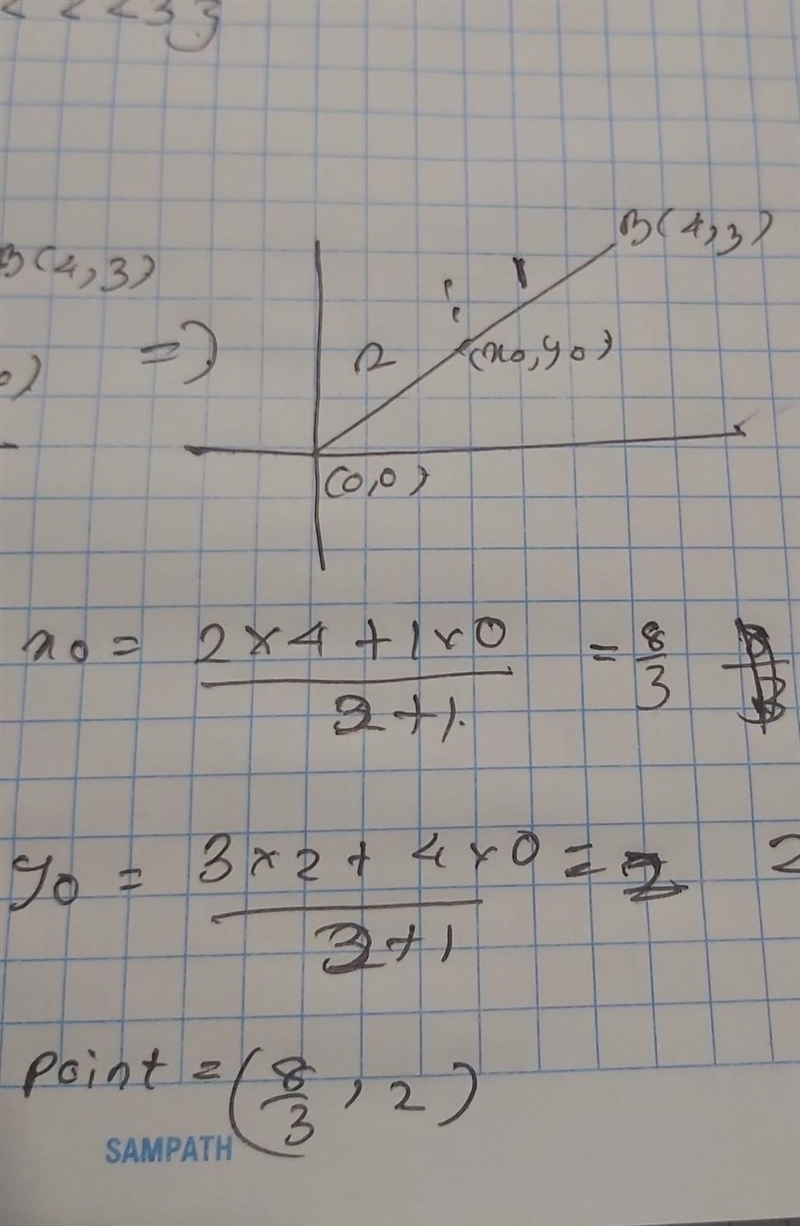 B(4,3)
B(4,3)
=>
1
:
2
(x₀,y₀)
0)
(0,0)
x₀ = (2×4 + 1×0)/(2+1) = 8/3
y₀ = (3×2 + 4×0)/(2+1) = 2
2
point = (8/3, 2)
SAMPATH